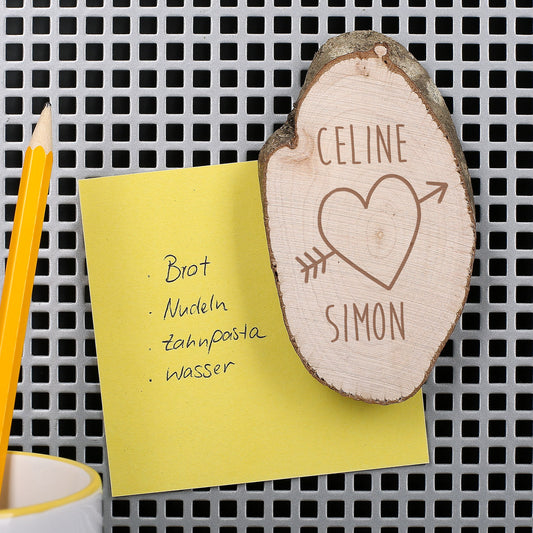 CELINE
SIMON
. Brot
. Nudeln
. zahnpasta
. wasser